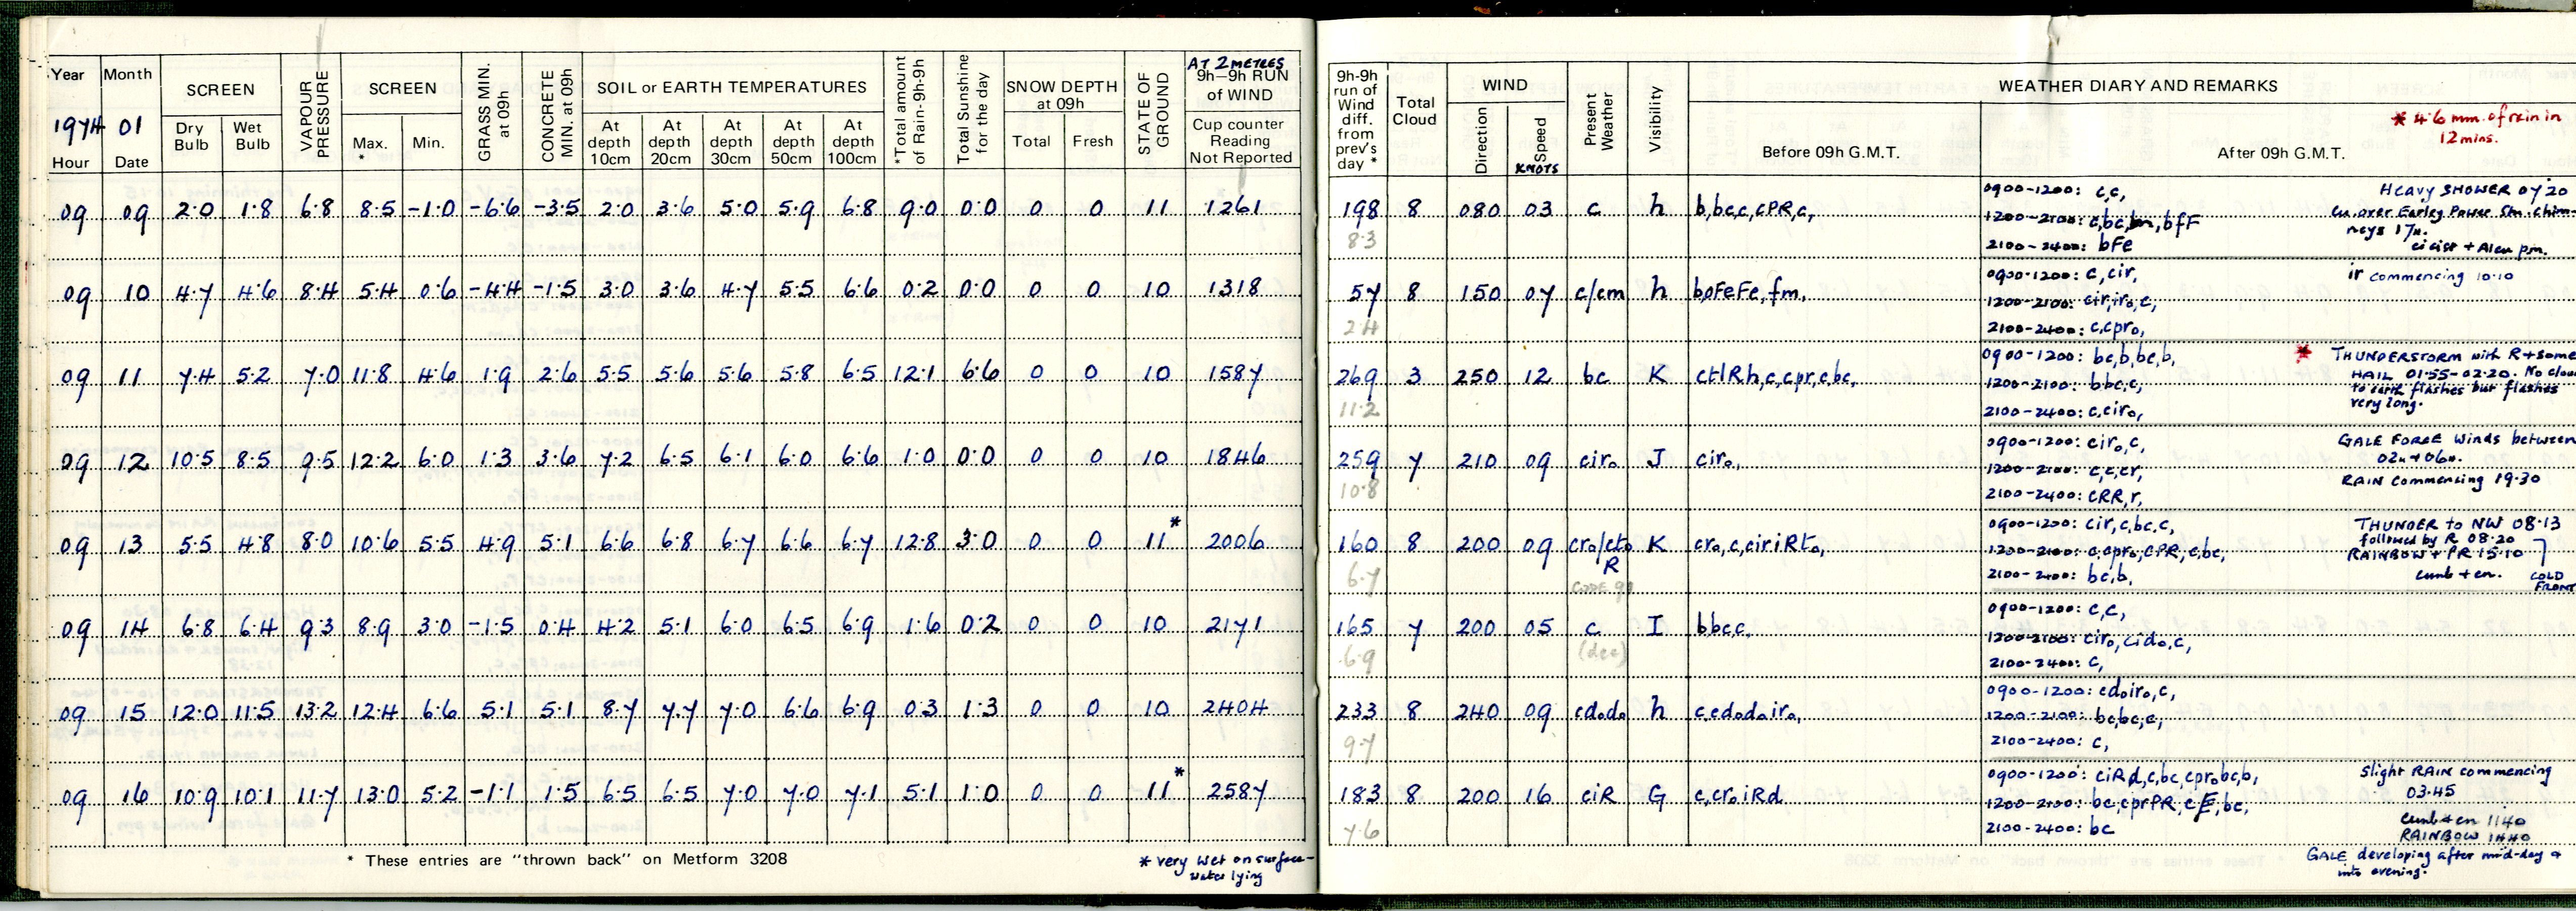 Year Month SCREEN VAPOUR PRESSURE SCREEN GRASS MIN. at 09h CONCRETE MIN. at 09h SOIL or EARTH TEMPERATURES *Total amount of Rain-9h-9h Total Sunshine for the day SNOW DEPTH at 09h STATE OF GROUND AT 2 METRES 9h—9h RUN of WIND
1974 01 Dry Bulb Wet Bulb Max. * Min. At depth 10cm At depth 20cm At depth 30cm At depth 50cm At depth 100cm Total Fresh Cup counter Reading Not Reported
Hour Date
09 09 2·0 1·8 6·8 8·5 -1·0 -6·6 -3·5 2·0 3·6 5·0 5·9 6·8 9·0 0·0 0 0 11 1261
09 10 4·7 4·6 8·4 5·4 0·6 -4·4 -1·5 3·0 3·6 4·7 5·5 6·6 0·2 0·0 0 0 10 1318
09 11 7·4 5·2 7·0 11·8 4·6 1·9 2·6 5·5 5·6 5·6 5·8 6·5 12·1 6·6 0 0 10 1587
09 12 10·5 8·5 9·5 12·2 6·0 1·3 3·6 7·2 6·5 6·1 6·0 6·6 1·0 0·0 0 0 10 1846
09 13 5·5 4·8 8·0 10·6 5·5 4·9 5·1 6·6 6·8 6·7 6·6 6·7 12·8 3·0 0 0 11* 2006
09 14 6·8 6·4 9·3 8·9 3·0 -1·5 0·4 4·2 5·1 6·0 6·5 6·9 1·6 0·2 0 0 10 2171
09 15 12·0 11·5 13·2 12·4 6·6 5·1 5·1 8·7 7·7 7·0 6·6 6·9 0·3 1·3 0 0 10 2404
09 16 10·9 10·1 11·7 13·0 5·2 -1·1 1·5 6·5 6·5 7·0 7·0 7·1 5·1 1·0 0 0 11* 2587
* These entries are "thrown back" on Metform 3208
* very wet on surface-
water lying
9h-9h run of Wind diff. from prev's day * Total Cloud WIND Direction Speed KNOTS Present Weather Visibility WEATHER DIARY AND REMARKS
Before 09h G.M.T. After 09h G.M.T.
* 4·6 mm. of rain in
12 mins.
198 8 080 03 c h b,bc,c,cPR,c,
8·3
0900-1200: c,c,
1200-2100: c,bc, ,bfF
2100-2400: bFe
Heavy SHOWER 0720
Cu. over Earley Power Stn. chim-
neys 17h.
ci cist + Alcu pm.
57 8 150 07 c/cm h boFeFe,fm,
2·4
0900-1200: c,cir,
1200-2100: cir,iro,c,
2100-2400: c,cpro,
ir commencing 10·10
269 3 250 12 bc K ctlRh,c,cpr,c,bc,
11·2
0900-1200: bc,b,bc,b,
1200-2100: bbc,c,
2100-2400: c,ciro,
* THUNDERSTORM with R+some
HAIL 01·55-02·20. No cloud
to earth flashes but flashes
very long.
259 7 210 09 ciro J ciro,
10·8
0900-1200: ciro,c,
1200-2100: c,c,cr,
2100-2400: cRR,r,
GALE FORCE Winds between
02h + 06h.
RAIN commencing 19·30
160 8 200 09 cro/cto R K cro,c,ciriRto,
6·7
CODE 91
0900-1200: cir,c,bc,c,
1200-2100: c,cpro,cPR,c,bc,
2100-2400: bc,b,
THUNDER to NW 08·13
followed by R 08·20
RAINBOW + PR 15·10
cumb + cn.
COLD
FRONT
165 7 200 05 c I bbcc,
6·9
0900-1200: c,c,
1200-2100: ciro,cido,c,
2100-2400: c,
233 8 240 09 cdodo h c,cdodoiro,
9·7
0900-1200: cdoiro,c,
1200-2100: bc,bc,c,
2100-2400: c,
183 8 200 16 ciR G c,croiRd
7·6
0900-1200: ciRd,c,bc,cprobc,b,
1200-2100: bc,cprPR,c ,bc,
2100-2400: bc
Slight RAIN commencing
03·45
cumb + cn 1140
RAINBOW 1440
GALE developing after mid-day +
into evening.